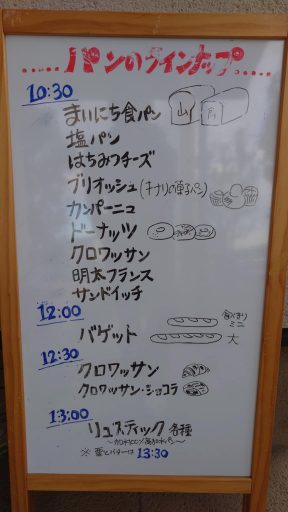 パンのラインナップ
10:30
まいにち食パン
山
角
塩パン
はちみつチーズ
ブリオッシュ(キナリの菓子パン)
カンパーニュ
ドーナッツ
クロワッサン
明太フランス
サンドイッチ
12:00
バゲット
食べきり
ミニ
大
12:30
クロワッサン
クロワッサン・ショコラ
13:00
リュスティック 各種
13:30